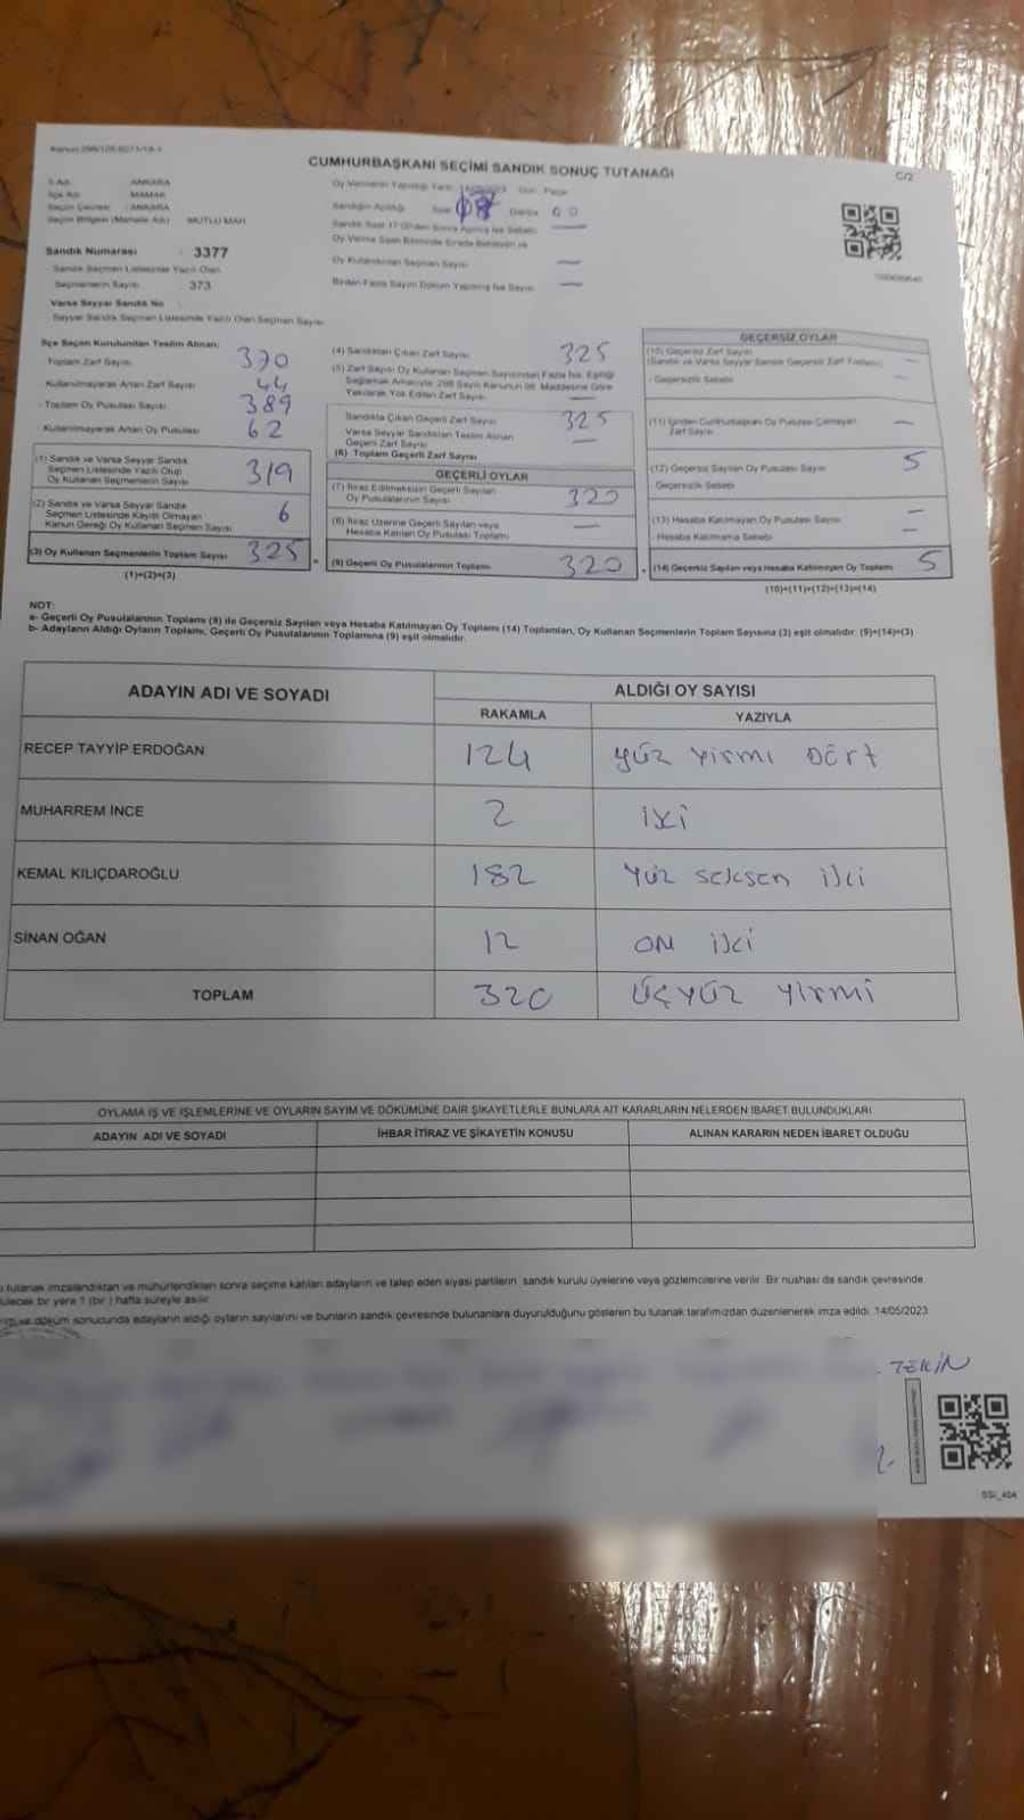 CUMHURBAŞKANI SEÇİMİ SANDIK SONUÇ TUTANAĞI
C/2
İl Adı : ANKARA
İlçe Adı : MAMAK
Seçim Çevresi : ANKARA
Seçim Bölgesi (Mahalle Adı) : MUTLU MAH
Sandık Numarası : 3377
Sandık Seçmen Listesinde Yazılı Olan
Seçmenlerin Sayısı : 373
Varsa Seyyar Sandık No
Seyyar Sandık Seçmen Listesinde Yazılı Olan Seçmen Sayısı
Oy Kullandırılan Seçmen Sayısı —
Birden Fazla Sayım Döküm Yapılmış İse Sayısı —
İlçe Seçim Kurulundan Teslim Alınan;
Toplam Zarf Sayısı 370
Kullanılmayarak Artan Zarf Sayısı 44
Toplam Oy Pusulası Sayısı 389
Kullanılmayarak Artan Oy Pusulası 62
(1) Sandık ve Varsa Seyyar Sandık
Seçmen Listesinde Yazılı Olup
Oy Kullanan Seçmenlerin Sayısı 319
(2) Sandık ve Varsa Seyyar Sandık
Seçmen Listesinde Kayıtlı Olmayan
Kanun Gereği Oy Kullanan Seçmen Sayısı 6
(3) Oy Kullanan Seçmenlerin Toplam Sayısı 325
(1)+(2)=(3)
(4) Sandıktan Çıkan Zarf Sayısı 325
(5) Zarf Sayısı Oy Kullanan Seçmen Sayısından Fazla İse, Eşitliği
Sağlamak Amacıyla 298 Sayılı Kanunun 98. Maddesine Göre
Yakılarak Yok Edilen Zarf Sayısı —
Sandıkta Çıkan Geçerli Zarf Sayısı 325
Varsa Seyyar Sandıktan Teslim Alınan
Geçerli Zarf Sayısı —
(6) Toplam Geçerli Zarf Sayısı
GEÇERLİ OYLAR
(7) İtiraz Edilmeksizin Geçerli Sayılan
Oy Pusulalarının Sayısı 320
(8) İtiraz Üzerine Geçerli Sayılan veya
Hesaba Katılan Oy Pusulası Toplamı —
(9) Geçerli Oy Pusulalarının Toplamı 320
GEÇERSİZ OYLAR
(10) Geçersiz Zarf Sayısı —
(Sandık ve Varsa Seyyar Sandık Geçersiz Zarf Toplamı)
Geçersizlik Sebebi —
(11) İçinden Cumhurbaşkanı Oy Pusulası Çıkmayan
Zarf Sayısı —
(12) Geçersiz Sayılan Oy Pusulası Sayısı 5
Geçersizlik Sebebi
(13) Hesaba Katılmayan Oy Pusulası Sayısı —
Hesaba Katılmama Sebebi —
(14) Geçersiz Sayılan veya Hesaba Katılmayan Oy Toplamı 5
(10)+(11)+(12)+(13)=(14)
NOT:
a- Geçerli Oy Pusulalarının Toplamı (9) ile Geçersiz Sayılan veya Hesaba Katılmayan Oy Toplamı (14) Toplamları, Oy Kullanan Seçmenlerin Toplam Sayısına (3) eşit olmalıdır. (9)+(14)=(3)
b- Adayların Aldığı Oyların Toplamı, Geçerli Oy Pusulalarının Toplamına (9) eşit olmalıdır.
ADAYIN ADI VE SOYADI
ALDIĞI OY SAYISI
RAKAMLA YAZIYLA
RECEP TAYYİP ERDOĞAN 124 yüz yirmi Dört
MUHARREM İNCE 2 iki
KEMAL KILIÇDAROĞLU 182 Yüz seksen iki
SİNAN OĞAN 12 on iki
TOPLAM 320 üçyüz yirmi
OYLAMA İŞ VE İŞLEMLERİNE VE OYLARIN SAYIM VE DÖKÜMÜNE DAİR ŞİKAYETLERLE BUNLARA AİT KARARLARIN NELERDEN İBARET BULUNDUKLARI
ADAYIN ADI VE SOYADI İHBAR İTİRAZ VE ŞİKAYETİN KONUSU ALINAN KARARIN NEDEN İBARET OLDUĞU
tutanak imzalandıktan ve mühürlendikten sonra seçime katılan adayların ve talep eden siyasi partilerin sandık kurulu üyelerine veya gözlemcilerine verilir. Bir nushası da sandık çevresinde
bir yere 1 (bir) hafta süreyle asılır.
ve döküm sonucunda adayların aldığı oyların sayılarını ve bunların sandık çevresinde bulunanlara duyurulduğunu gösteren bu tutanak tarafımızdan düzenlenerek imza edildi. 14/05/2023
TEKİN